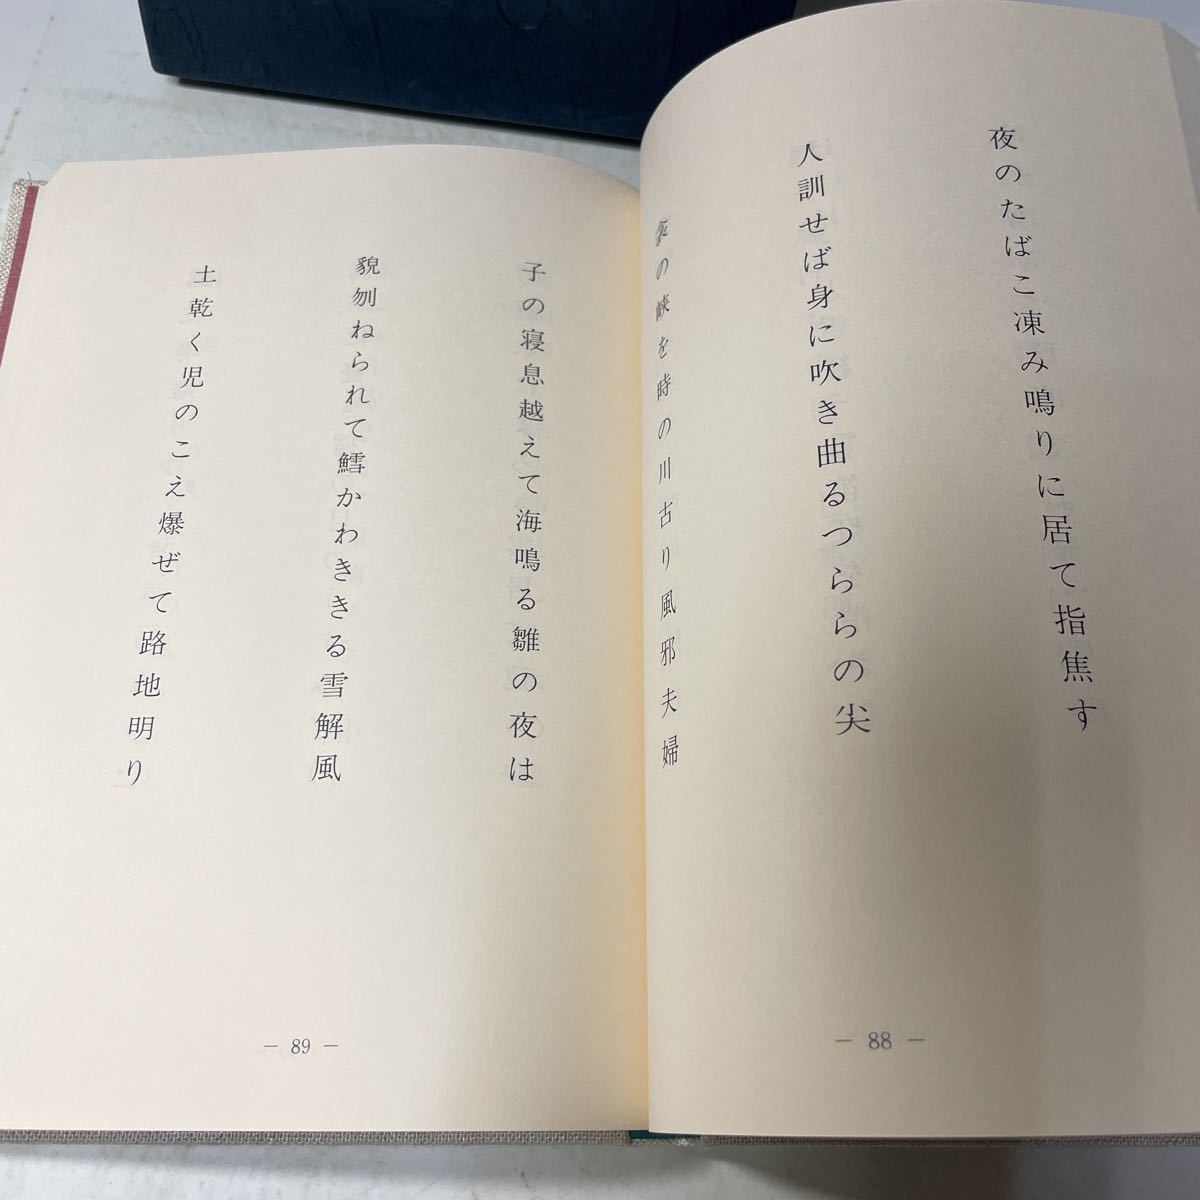 夜のたばこ凍み鳴りに居て指焦す
人訓せば身に吹き曲るつららの尖
の峡を時の川古り風邪夫婦
― 88 ―
子の寝息越えて海鳴る雛の夜は
貌刎ねられて鱈かわききる雪解風
土乾く児のこえ爆ぜて路地明り
― 89 ―